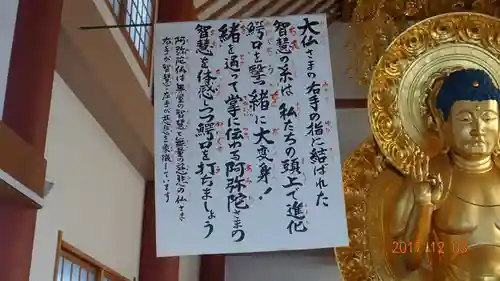 大仏さまの右手の指に結ばれた
智慧の糸は 私たちの頭上で進化
鰐口を撃つ緒に大変身!
緒を通って掌に伝わる阿弥陀さまの
智慧を体感しつつ鰐口を打ちましょう
阿弥陀仏は無量の智慧と無量の慈悲の仏さま
右手が智慧 左手が慈悲の象徴
2017 12 03